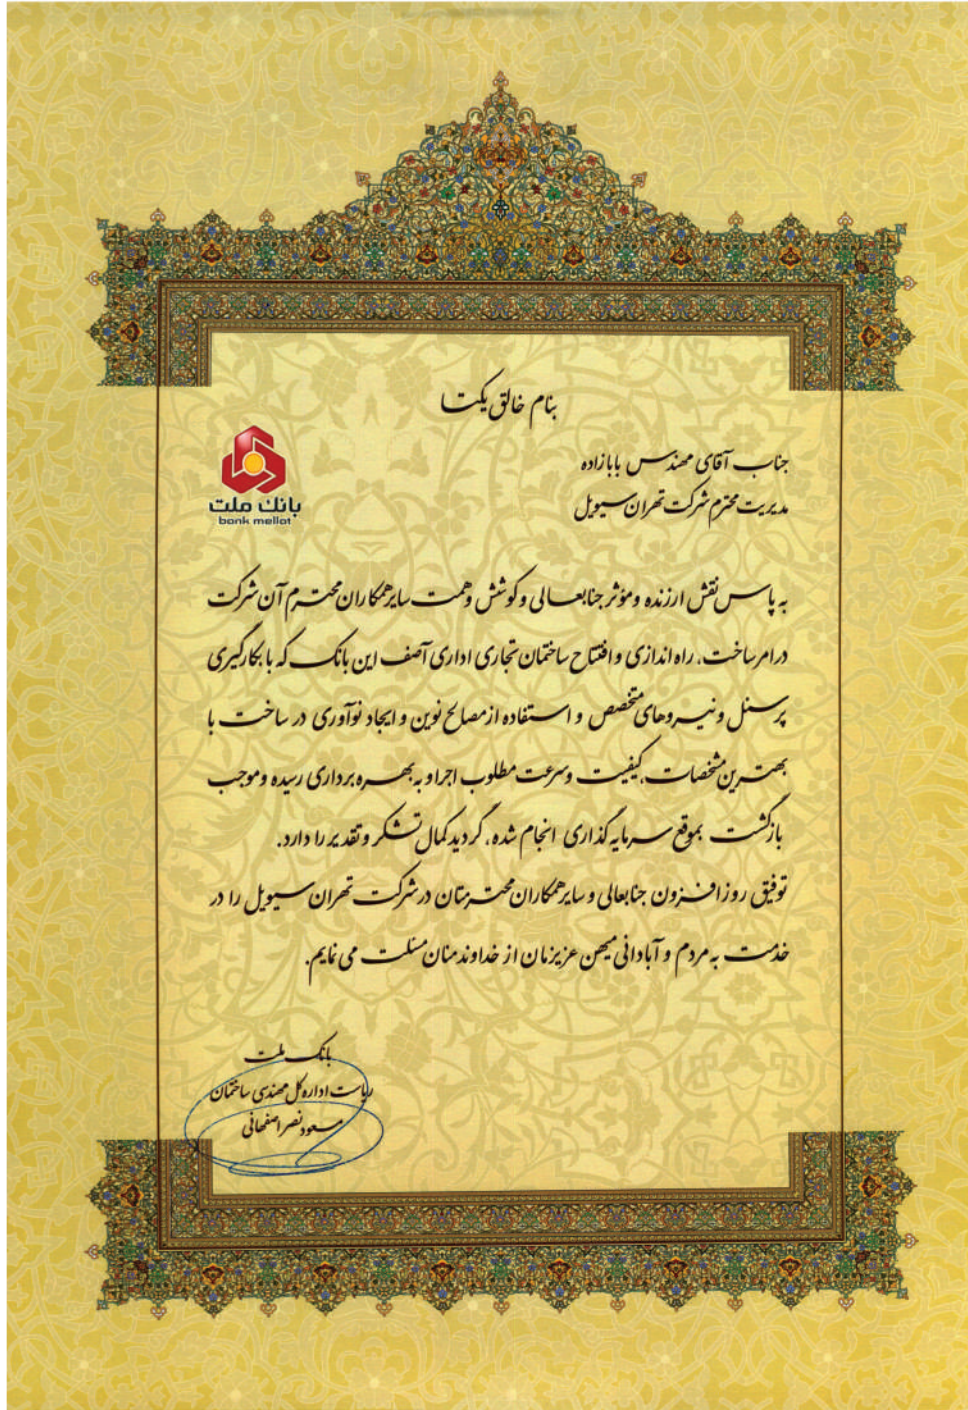 بنام خالق یکتا
بانک ملت
bank mellat
جناب آقای مهندس بابازاده
مدیریت محترم شرکت تهران سیویل
به پاس نقش ارزنده و مؤثر جنابعالی و کوشش و همت سایر همکاران محترم آن شرکت
در امر ساخت، راه اندازی و افتتاح ساختمان تجاری اداری آصف این بانک که با بکارگیری
پرسنل و نیروهای متخصص و استفاده از مصالح نوین و ایجاد نوآوری در ساخت با
بهترین مشخصات، کیفیت و سرعت مطلوب اجرا و به بهره برداری رسیده و موجب
بازگشت بموقع سرمایه گذاری انجام شده، گردید کمال تشکر و تقدیر را دارد.
توفیق روز افزون جنابعالی و سایر همکاران محترمتان در شرکت تهران سیویل را در
خدمت به مردم و آبادانی میهن عزیزمان از خداوند منان مسئلت می نمایم.
بانک ملت
ریاست اداره کل مهندسی ساختمان
مسعود نصر اصفهانی